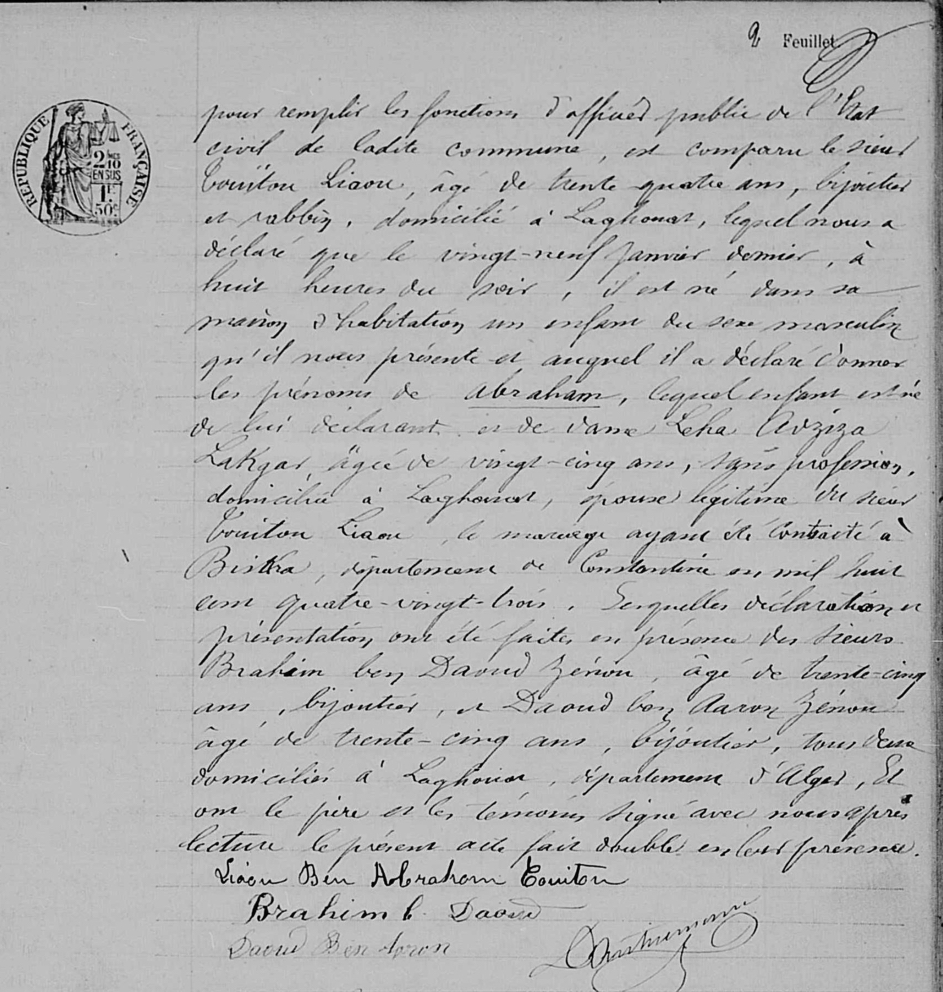 2 Feuillet
RÉPUBLIQUE FRANÇAISE
2/10 EN SUS
1F 50c
pour remplir les fonctions d'officier public de l'Etat
civil de ladite commune, est comparu le sieur
Touitou Liaou, âgé de trente quatre ans, bijoutier
et rabbin, domicilié à Laghouat, lequel nous a
déclaré que le vingt-neuf Janvier dernier, à
huit heures du soir, il est né dans sa
maison d'habitation un enfant du sexe masculin
qu'il nous présente et auquel il a déclaré donner
les prénoms de Abraham, lequel enfant est né
de lui déclarant et de dame Leha Aziza
Lakyar, âgée de vingt-cinq ans, sans profession,
domiciliée à Laghouat, épouse légitime du sieur
Touitou Liaou, le mariage ayant été contracté à
Biskra, département de Constantine en mil huit
cent quatre-vingt-trois. Lesquelles déclaration et
présentation ont été faites en présence des sieurs
Brahim ben Daoud Zénou, âgé de trente-cinq
ans, bijoutier, et Daoud ben Aaron Zénou
âgé de trente-cinq ans, bijoutier, tous deux
domiciliés à Laghouat, département d'Alger, Et
ont le père et les témoins signé avec nous après
lecture le présent acte fait double en leur présence.
Liaou Ben Abraham Touitou
Brahim b. Daoud
Daoud Ben Aron